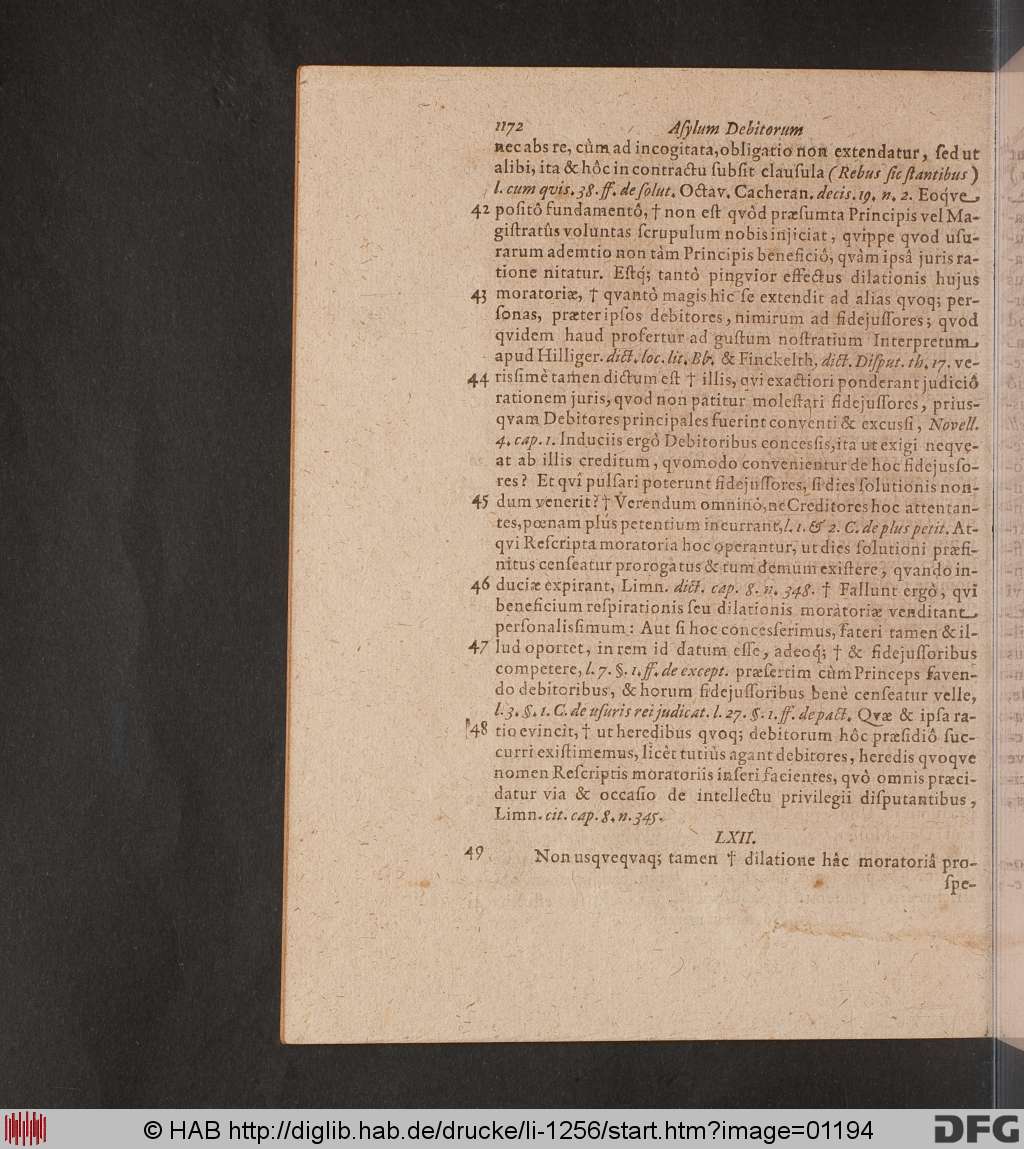 1172 Aſylum Debitorum
nec abs re, cùm ad incogitata, obligatio non extendatur, ſed ut
alibi, ita & hôc in contractu ſubſit clauſula (Rebus ſic ſtantibus)
l. cum qvis. 38. ff. de ſolut. Octav. Cacheran. decis. 19. n. 2. Eoq́ve
42 poſitô fundamentô, † non eſt qvòd præſumta Principis vel Ma-
giſtratûs voluntas ſcrupulum nobis injiciat, qvippe qvod uſu-
rarum ademtio non tàm Principis beneficiô, qvàm ipsâ juris ra-
tione nitatur. Eſtq́; tantò pingvior effectus dilationis hujus
43 moratoriæ, † qvantò magis hic ſe extendit ad alias qvoq; per-
ſonas, præter ipſos debitores, nimirum ad fidejuſſores; qvod
qvidem haud profertur ad guſtum noſtratium Interpretum
apud Hilliger. dict. loc. lit. Bb. & Finckelth. dict. Diſput. th. 17. ve-
44 risſimè tamen dictum eſt † illis, qvi exactiori ponderant judiciô
rationem juris, qvod non patitur moleſtari fidejuſſores, prius-
qvam Debitores principales fuerint conventi & excusſi, Novell.
4. cap. 1. Induciis ergò Debitoribus concesſis, ita ut exigi neqve-
at ab illis creditum, qvomodo convenientur de hoc fidejusſo-
res? Et qvî pulſari poterunt fidejuſſores, ſi dies ſolutionis non-
45 dum venerit? † Verendum omninò, ne Creditores hoc attentan-
tes, pœnam plús petentium incurrant, l. 1. & 2. C. de plus petit. At-
qvi Reſcripta moratoria hoc operantur, ut dies ſolutioni præfi-
nitus cenſeatur prorogatus & tum demum exiſtere, qvando in-
46 duciæ expirant, Limn. dict. cap. 8. n. 348. † Fallunt ergò, qvi
beneficium reſpirationis ſeu dilationis moratoriæ venditant
perſonalisſimum: Aut ſi hoc concesſerimus, fateri tamen & il-
47 lud oportet, in rem id datum eſſe, adeoq́; † & fidejuſſoribus
competere, l. 7. §. 1. ff. de except. præſertim cùm Princeps faven-
do debitoribus, & horum fidejuſſoribus benè cenſeatur velle,
l. 3. §. 1. C. de uſuris rei judicat. l. 27. §. 1. ff. de pact. Qvæ & ipſa ra-
48 tio evincit, † ut heredibus qvoq; debitorum hôc præſidiô ſuc-
curri exiſtimemus, licèt tutiùs agant debitores, heredis qvoqve
nomen Reſcriptis moratoriis inſeri facientes, qvò omnis præci-
datur via & occaſio de intellectu privilegii diſputantibus,
Limn. cit. cap. 8. n. 345.
LXII.
49 Non usqveqvaq; tamen † dilatione hâc moratoriâ pro-
ſpe-
© HAB http://diglib.hab.de/drucke/li-1256/start.htm?image=01194
DFG